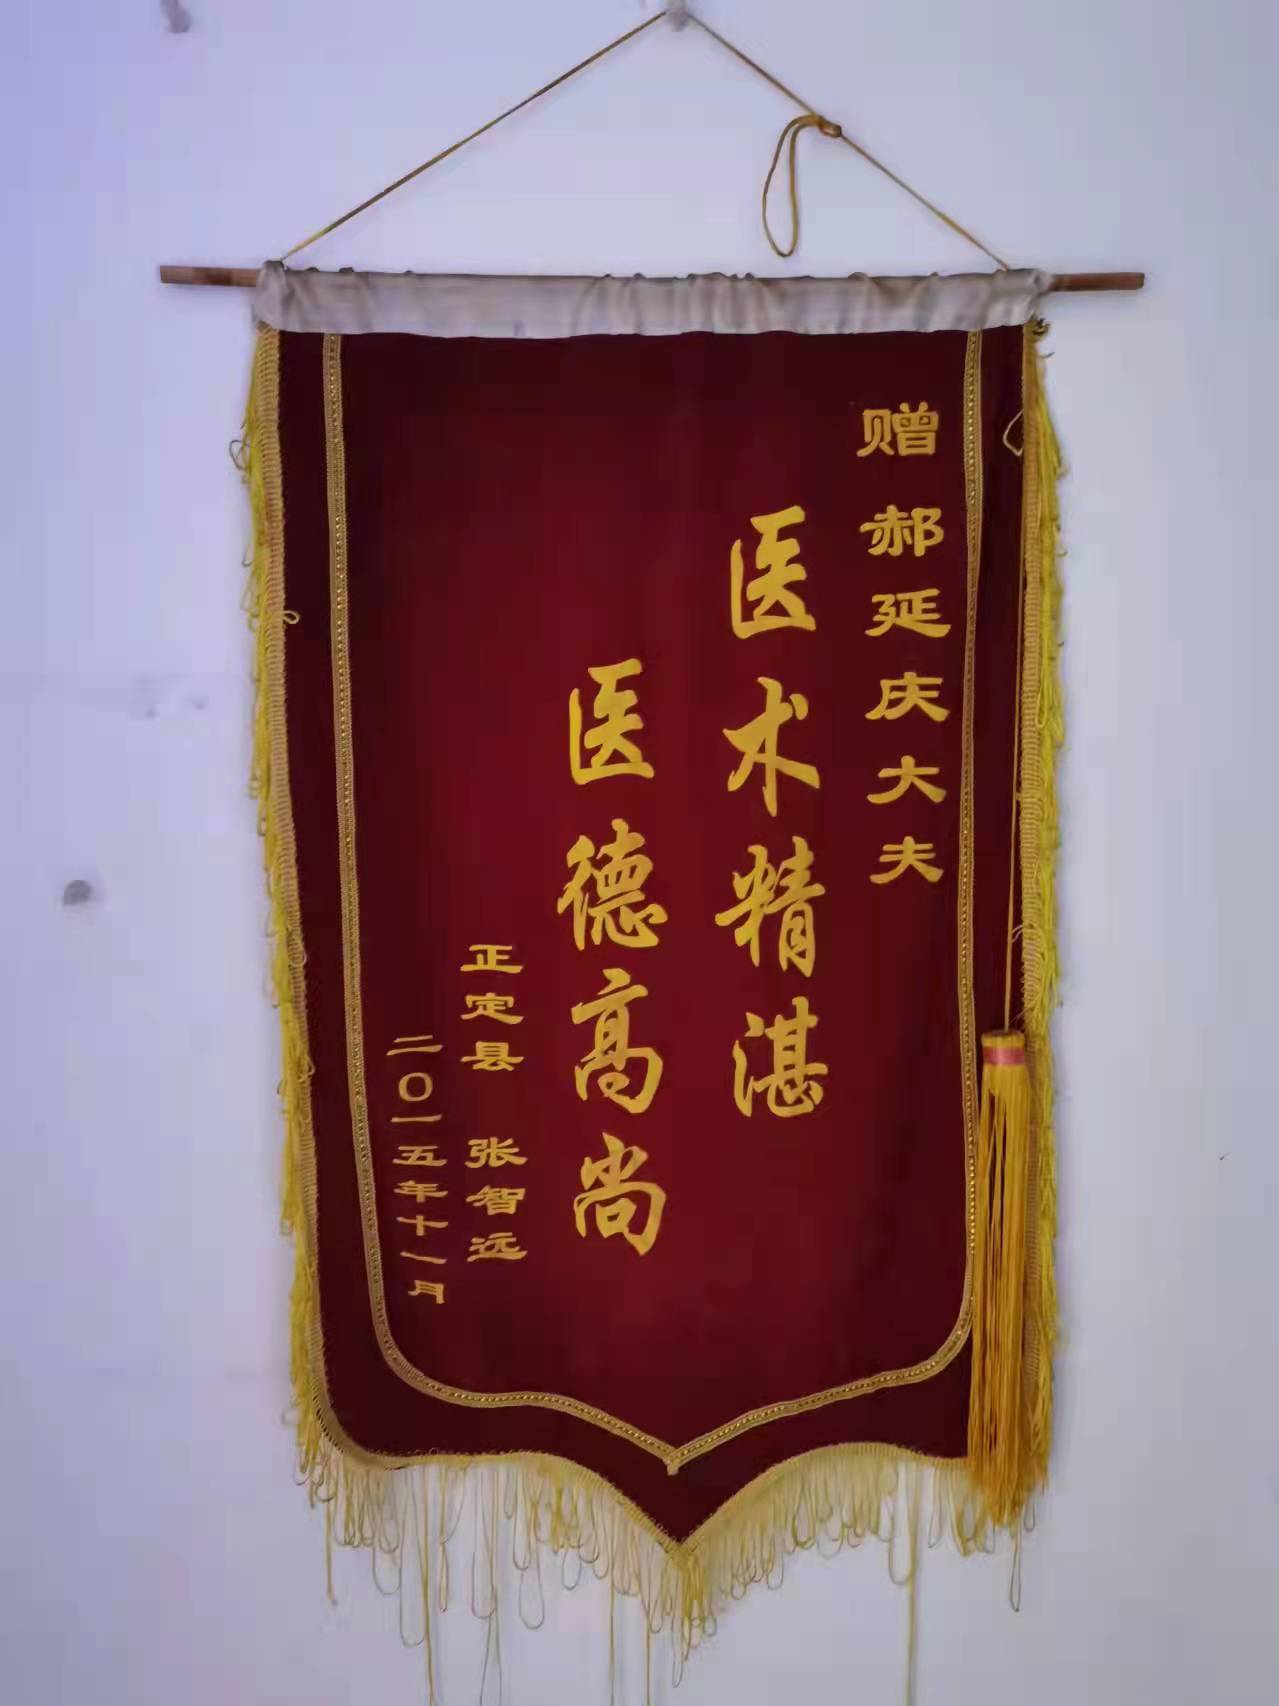 赠郝延庆大夫
医术精湛
医德高尚
正定县 张智远
二〇一五年十一月